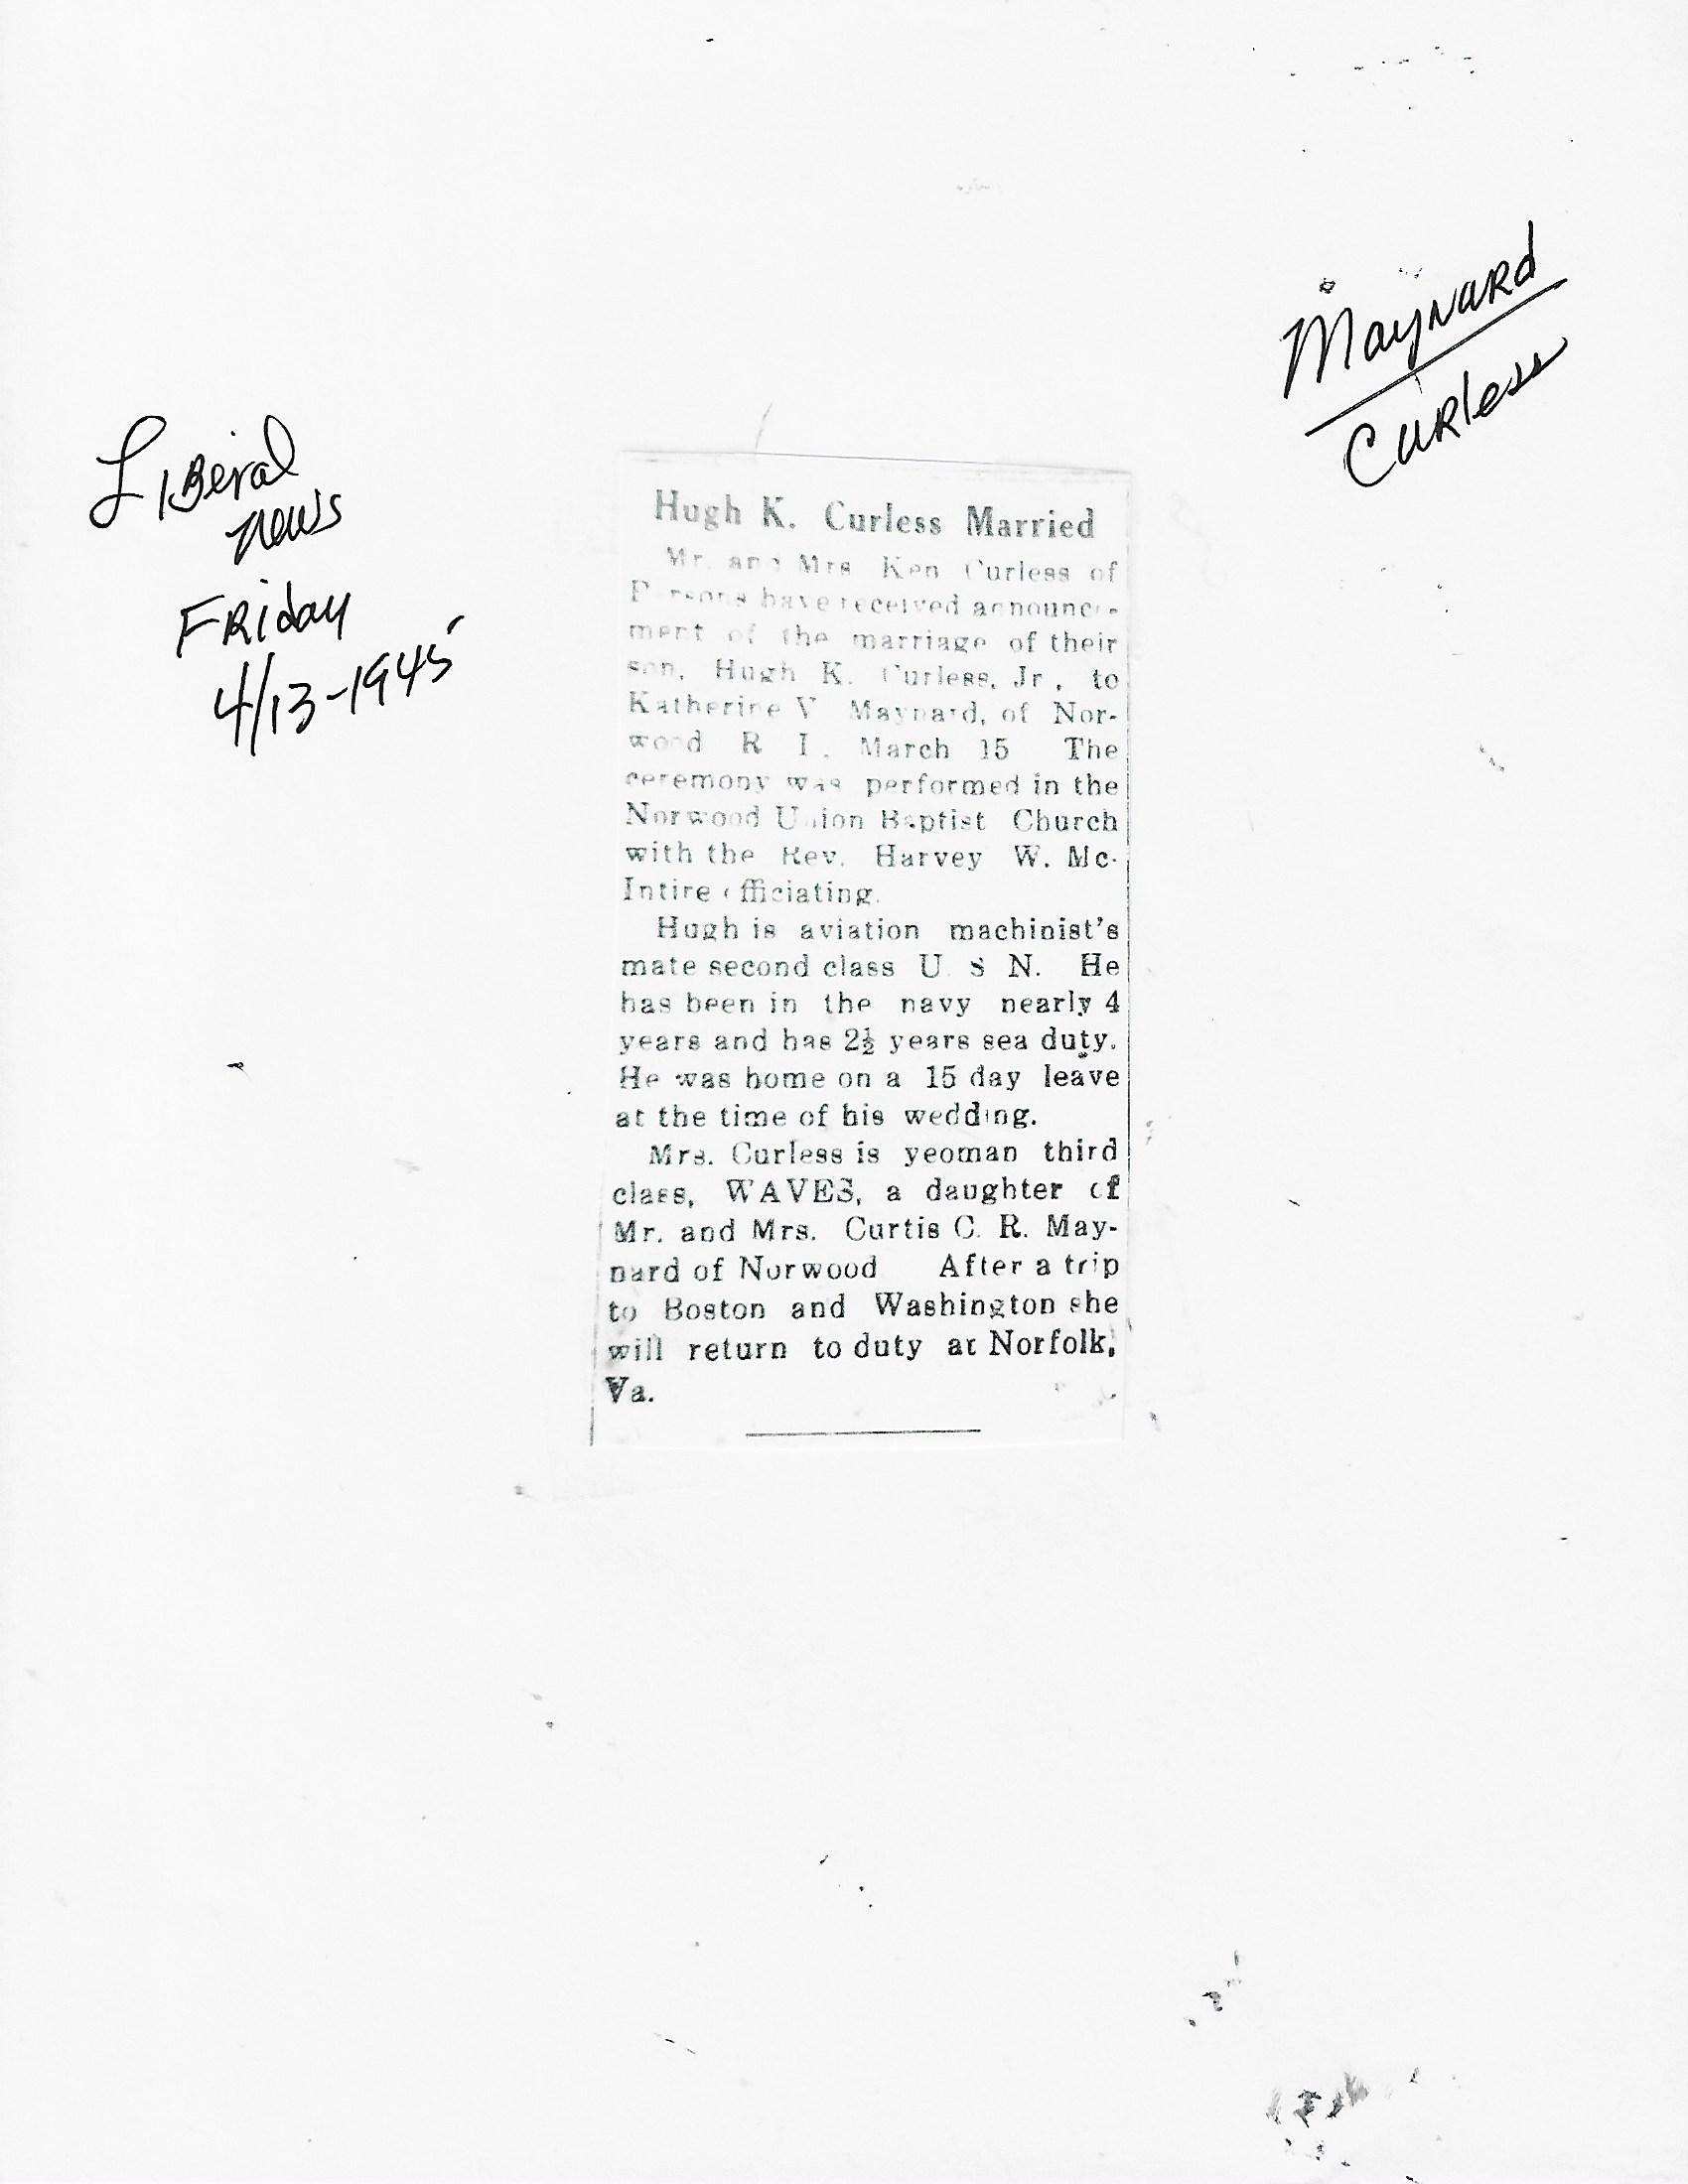 Maynard
Curless
Liberal
News
Friday
4/13-1945
Hugh K. Curless Married
Mr. and Mrs Ken Curless of
Parsons have received announce-
ment of the marriage of their
son, Hugh K. Curless, Jr., to
Katherine V Maynard, of Nor-
wood R I. March 15 The
ceremony was performed in the
Norwood Union Baptist Church
with the Rev. Harvey W. Mc-
Intire officiating.
Hugh is aviation machinist's
mate second class U S N. He
has been in the navy nearly 4
years and has 2½ years sea duty.
He was home on a 15 day leave
at the time of his wedding.
Mrs. Curless is yeoman third
class, WAVES, a daughter of
Mr. and Mrs. Curtis C. R. May-
nard of Norwood After a trip
to Boston and Washington she
will return to duty at Norfolk,
Va.